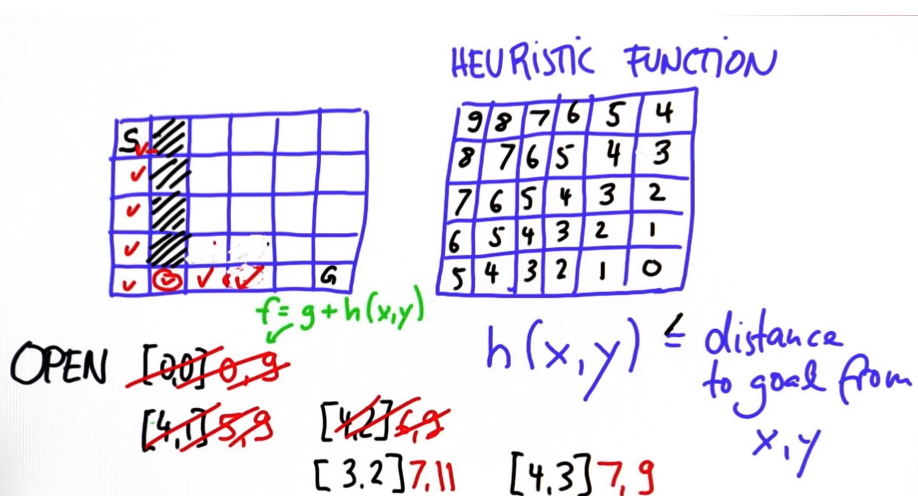 HEURISTIC FUNCTION
S
G
9 8 7 6 5 4
8 7 6 5 4 3
7 6 5 4 3 2
6 5 4 3 2 1
5 4 3 2 1 0
f = g + h(x,y)
OPEN [0,0] 0,9
[4,1] 5,9 [4,2] 6,9
[3.2] 7,11 [4,3] 7,9
h(x,y) ≤ distance
to goal from
x,y